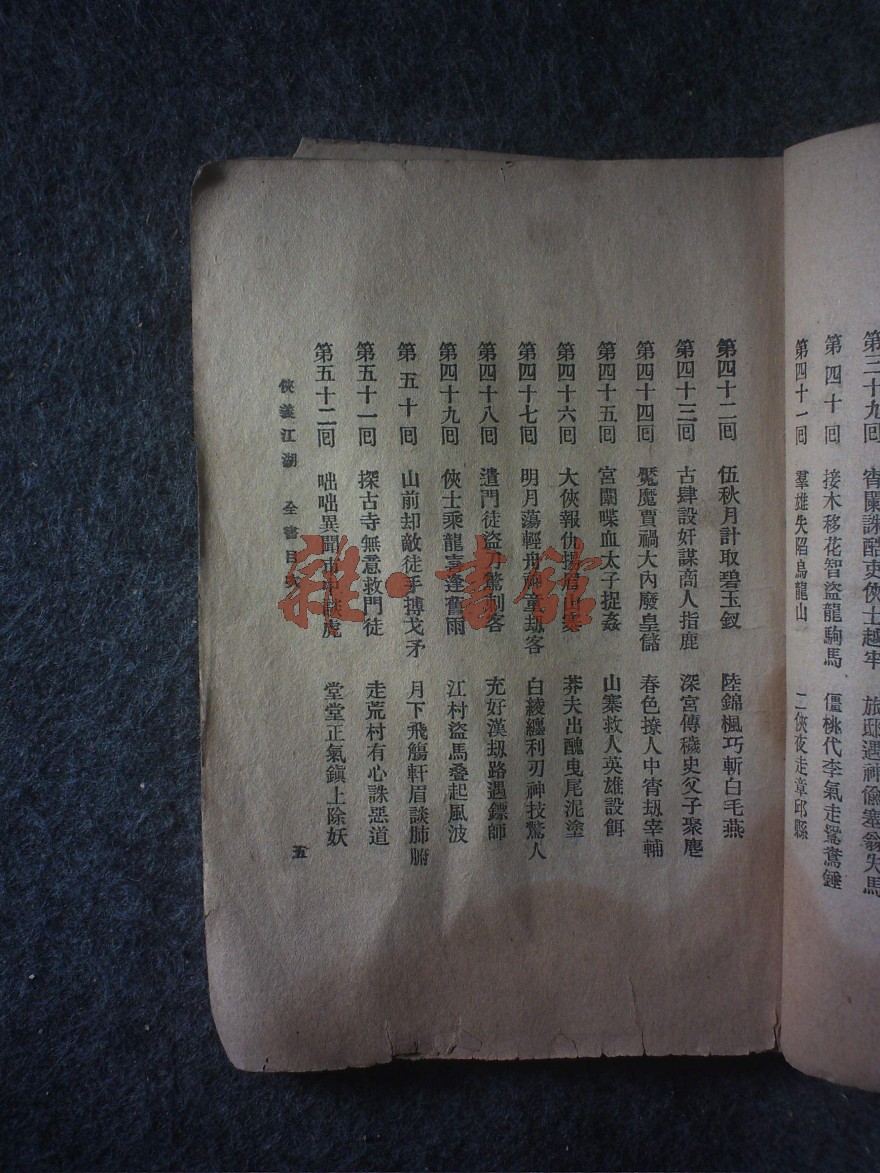 第三十九回 宵闌誅酷吏俠士越牢 旅邸遇神偸塞翁失馬
第四十回 接木移花智盜龍駒馬 僵桃代李氣走鴛鴦錘
第四十一回 羣雄失陷烏龍山 二俠夜走章邱縣
第四十二回 伍秋月計取碧玉釵 陸錦楓巧斬白毛燕
第四十三回 古肆設奸謀商人指鹿 深宮傳穢史父子聚麀
第四十四回 魘魔賈禍大內廢皇儲 春色撩人中宵刼宰輔
第四十五回 宮闈喋血太子捉姦 山寨救人英雄設餌
第四十六回 大俠報仇揚眉 莽夫出醜曳尾泥塗
第四十七回 明月蕩輕舟神童刼客 白綾纏利刃神技驚人
第四十八回 遣門徒盜丹驚刺客 充好漢刼路遇鏢師
第四十九回 俠士乘龍喜逢舊雨 江村盜馬叠起風波
第五十回 山前却敵徒手搏戈矛 月下飛觴軒眉談肺腑
第五十一回 探古寺無意救門徒 走荒村有心誅惡道
第五十二回 咄咄異聞市中談虎 堂堂正氣鎭上除妖
俠義江湖 全書目次 五
雜·書館